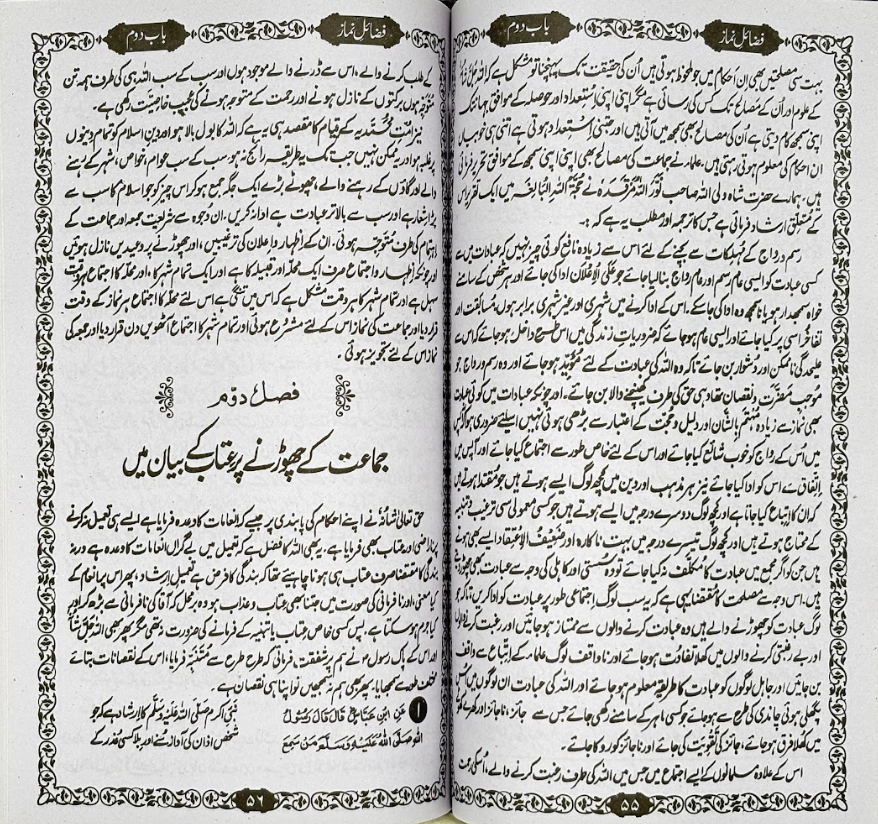 فضائل نماز
باب دوم
بہت سی مصلحتیں بھی ان احکام میں جو ملحوظ ہوتی ہیں اُن کی حقیقت تک پہنچنا تو مشکل ہے کہ اللہ
کے علوم اور اُن کے مصالح تک کس کی رسائی ہے مگر اپنی اپنی استعداد اور حوصلہ کے موافق جہاں تک
اپنی سمجھ کام دیتی ہے اُن کی مصالح بھی سمجھ میں آتی ہیں اور جتنی استعداد ہوتی ہے اتنی ہی خوبیاں
ان احکام کی معلوم ہوتی رہتی ہیں۔ علماء نے جماعت کی مصالح بھی اپنی اپنی سمجھ کے موافق تحریر فرمائی
ہیں۔ ہمارے حضرت شاہ ولی اللہ صاحب نَوَّرَ اللہُ مَرْقَدَہٗ نے حُجَّۃُ اللہِ الْبَالِغَہ میں ایک تقریر اس
کے متعلق ارشاد فرمائی ہے جس کا ترجمہ اور مطلب یہ ہے کہ :۔
رسم و رواج کے مُہلِکات سے بچنے کے لئے اس سے زیادہ نافع کوئی چیز نہیں کہ عبادات میں سے
کسی عبادت کو ایسی عام رسم اور عام رواج بنا لیا جائے جو عَلَی الْاِعْلان ادا کی جائے اور ہر شخص کے سامنے
خواہ سمجھدار ہو یا ناسمجھ وہ ادا کی جا سکے۔ اس کے ادا کرنے میں شہری اور غیر شہری برابر ہوں، مسابقت اور
تفاخُر اسی پر کیا جائے اور ایسی عام ہو جائے کہ ضروریاتِ زندگی میں اس طرح داخل ہو جائے کہ اس سے
علیحدگی ناممکن اور دشوار بن جائے تاکہ وہ اللہ کی عبادت کے لئے مُؤَیِّد ہو جائے اور وہ رسم و رواج جو
مُوجِبِ مَضَرَّت و نقصان تھا وہی حق کی طرف کھینچنے والا بن جائے۔ اور چونکہ عبادات میں کوئی عبادت
بھی نماز سے زیادہ مُہْتَم بِالشَّان اور دلیل و حجت کے اعتبار سے بڑھی ہوئی نہیں اسلئے ضروری ہوا کہ آپس
میں اُس کے رواج کو خوب شائع کیا جائے اور اس کے لئے خاص طور سے اجتماع کیا جائے اور آپس میں
اتفاق سے اس کو ادا کیا جائے نیز ہر مذہب اور دین میں کچھ لوگ ایسے ہوتے ہیں جو مُقْتَدا ہوتے ہیں
کہ ان کا اِتباع کیا جاتا ہے اور کچھ لوگ دوسرے درجہ میں ایسے ہوتے ہیں جو کسی معمولی سی ترغیب و تنبیہ
کے محتاج ہوتے ہیں اور کچھ لوگ تیسرے درجہ میں بہت ناکارہ اور ضَعِیْفُ الْاِعْتِقاد ایسے بھی ہوتے
ہیں جن کو اگر مجمع میں عبادت کا مُکلَّف نہ کیا جائے تو وہ سُستی اور کاہلی کی وجہ سے عبادت بھی چھوڑ دیتے
ہیں۔ اس وجہ سے مصلحت کا مُقْتَضا یہی ہے کہ یہ سب لوگ اجتماعی طور پر عبادت کو ادا کریں تاکہ جو
لوگ عبادت کو چھوڑنے والے ہیں وہ عبادت کرنے والوں سے ممتاز ہو جائیں اور رغبت کرنے والوں
اور بے رغبتی کرنے والوں میں کھلا تفاوُت ہو جائے اور ناواقف لوگ علماء کے اِتّباع سے واقف
بن جائیں اور جاہل لوگوں کو عبادت کا طریقہ معلوم ہو جائے اور اللہ کی عبادت ان لوگوں میں اُس
پگھلی ہوئی چاندی کی طرح سے ہو جائے جو کسی ماہر کے سامنے رکھی جائے جس سے جائز، ناجائز اور کھرے کھوٹے
میں کھلا فرق ہو جائے، جائز کی تَقْوِیت کی جائے اور ناجائز کو روکا جائے۔
اس کے علاوہ مسلمانوں کے ایسے اجتماع میں جس میں اللہ کی طرف رغبت کرنے والے، اُسکی رحمت
۵۵
فضائل نماز
باب دوم
کے طلب کرنے والے، اس سے ڈرنے والے موجود ہوں اور سب کے سب اللہ ہی کی طرف ہمہ تن
مُتوجّہ ہوں برکتوں کے نازل ہونے اور رحمت کے متوجہ ہونے کی عجیب خاصیّت رکھی ہے۔
نیز اُمّتِ مُحمَّدیہ کے قیام کا مقصد ہی یہ ہے کہ اللہ کا بول بالا ہو اور دینِ اسلام کو تمام دینوں
پر غلبہ ہو اور یہ ممکن نہیں جب تک یہ طریقہ رائج نہ ہو سب کے سب عوام، خواص، شہر کے رہنے
والے اور گاؤں کے رہنے والے، چھوٹے بڑے ایک جگہ جمع ہو کر اس چیز کو جو اسلام کا سب سے
بڑا شعار ہے اور سب سے بالاتر عبادت ہے ادا نہ کریں، ان وجوہ سے شریعت جمعہ اور جماعت کے
اہتمام کی طرف مُتوجّہ ہوئی۔ ان کے اظہار و اعلان کی ترغیبیں، اور چھوڑنے پر وعیدیں نازل ہوئیں
اور چونکہ اظہار و اجتماع صرف ایک محلّہ اور قبیلہ کا ہے اور ایک تمام شہر کا، اور محلّہ کا اجتماع ہر وقت
سہل ہے اور تمام شہر کا ہر وقت مشکل ہے کہ اس میں تنگی ہے اس لئے محلّہ کا اجتماع ہر نماز کے وقت
قرار دیا اور جماعت کی نماز اس کے لئے مشروع ہوئی اور تمام شہر کا اجتماع آٹھویں دن قرار دیا اور جمعہ کی
نماز اس کے لئے تجویز ہوئی۔
فصل دوم
جماعت کے چھوڑنے پر عتاب کے بیان میں
حق تعالیٰ شانہٗ نے اپنے احکام کی پابندی پر جیسے کہ انعامات کا وعدہ فرمایا ہے ایسے ہی تعمیل نہ کرنے
پر ناراضی اور عتاب بھی فرمایا ہے۔ یہ بھی اللہ کا فضل ہے کہ تعمیل میں بے گراں انعامات کا وعدہ ہے ورنہ
بندگی کا مقتضا صرف عتاب ہی ہونا چاہیئے تھا کہ بندگی کا فرض ہے تعمیلِ ارشاد، پھر اس پر انعام کے
کیا معنی، اور نافرمانی کی صورت میں جتنا بھی عتاب و عذاب ہو وہ برمحل کہ آقا کی نافرمانی سے بڑھ کر اور
کیا جرم ہو سکتا ہے۔ پس کسی خاص عتاب یا تنبیہ کے فرمانے کی ضرورت نہ تھی مگر پھر بھی اللہ جَلَّ شَانُہٗ
اور اس کے پاک رسول نے ہم پر شفقت فرمائی کہ طرح طرح سے مُتنبِّہ فرمایا، اس کے نقصانات بتائے
مختلف طور سے سمجھایا، پھر بھی ہم نہ سمجھیں تو اپنا ہی نقصان ہے۔
۱ عَنِ ابْنِ عَبَّاسٍؓ قَالَ قَالَ رَسُوْلُ
اللہِ صَلَّی اللہُ عَلَیْہِ وَسَلَّمَ مَنْ سَمِعَ
نبیِ اکرم صَلَّی اللہُ عَلَیْہِ وَسَلَّم کا ارشاد ہے کہ جو
شخص اذان کی آواز سُنے اور بلا کسی عُذر کے
۵۶